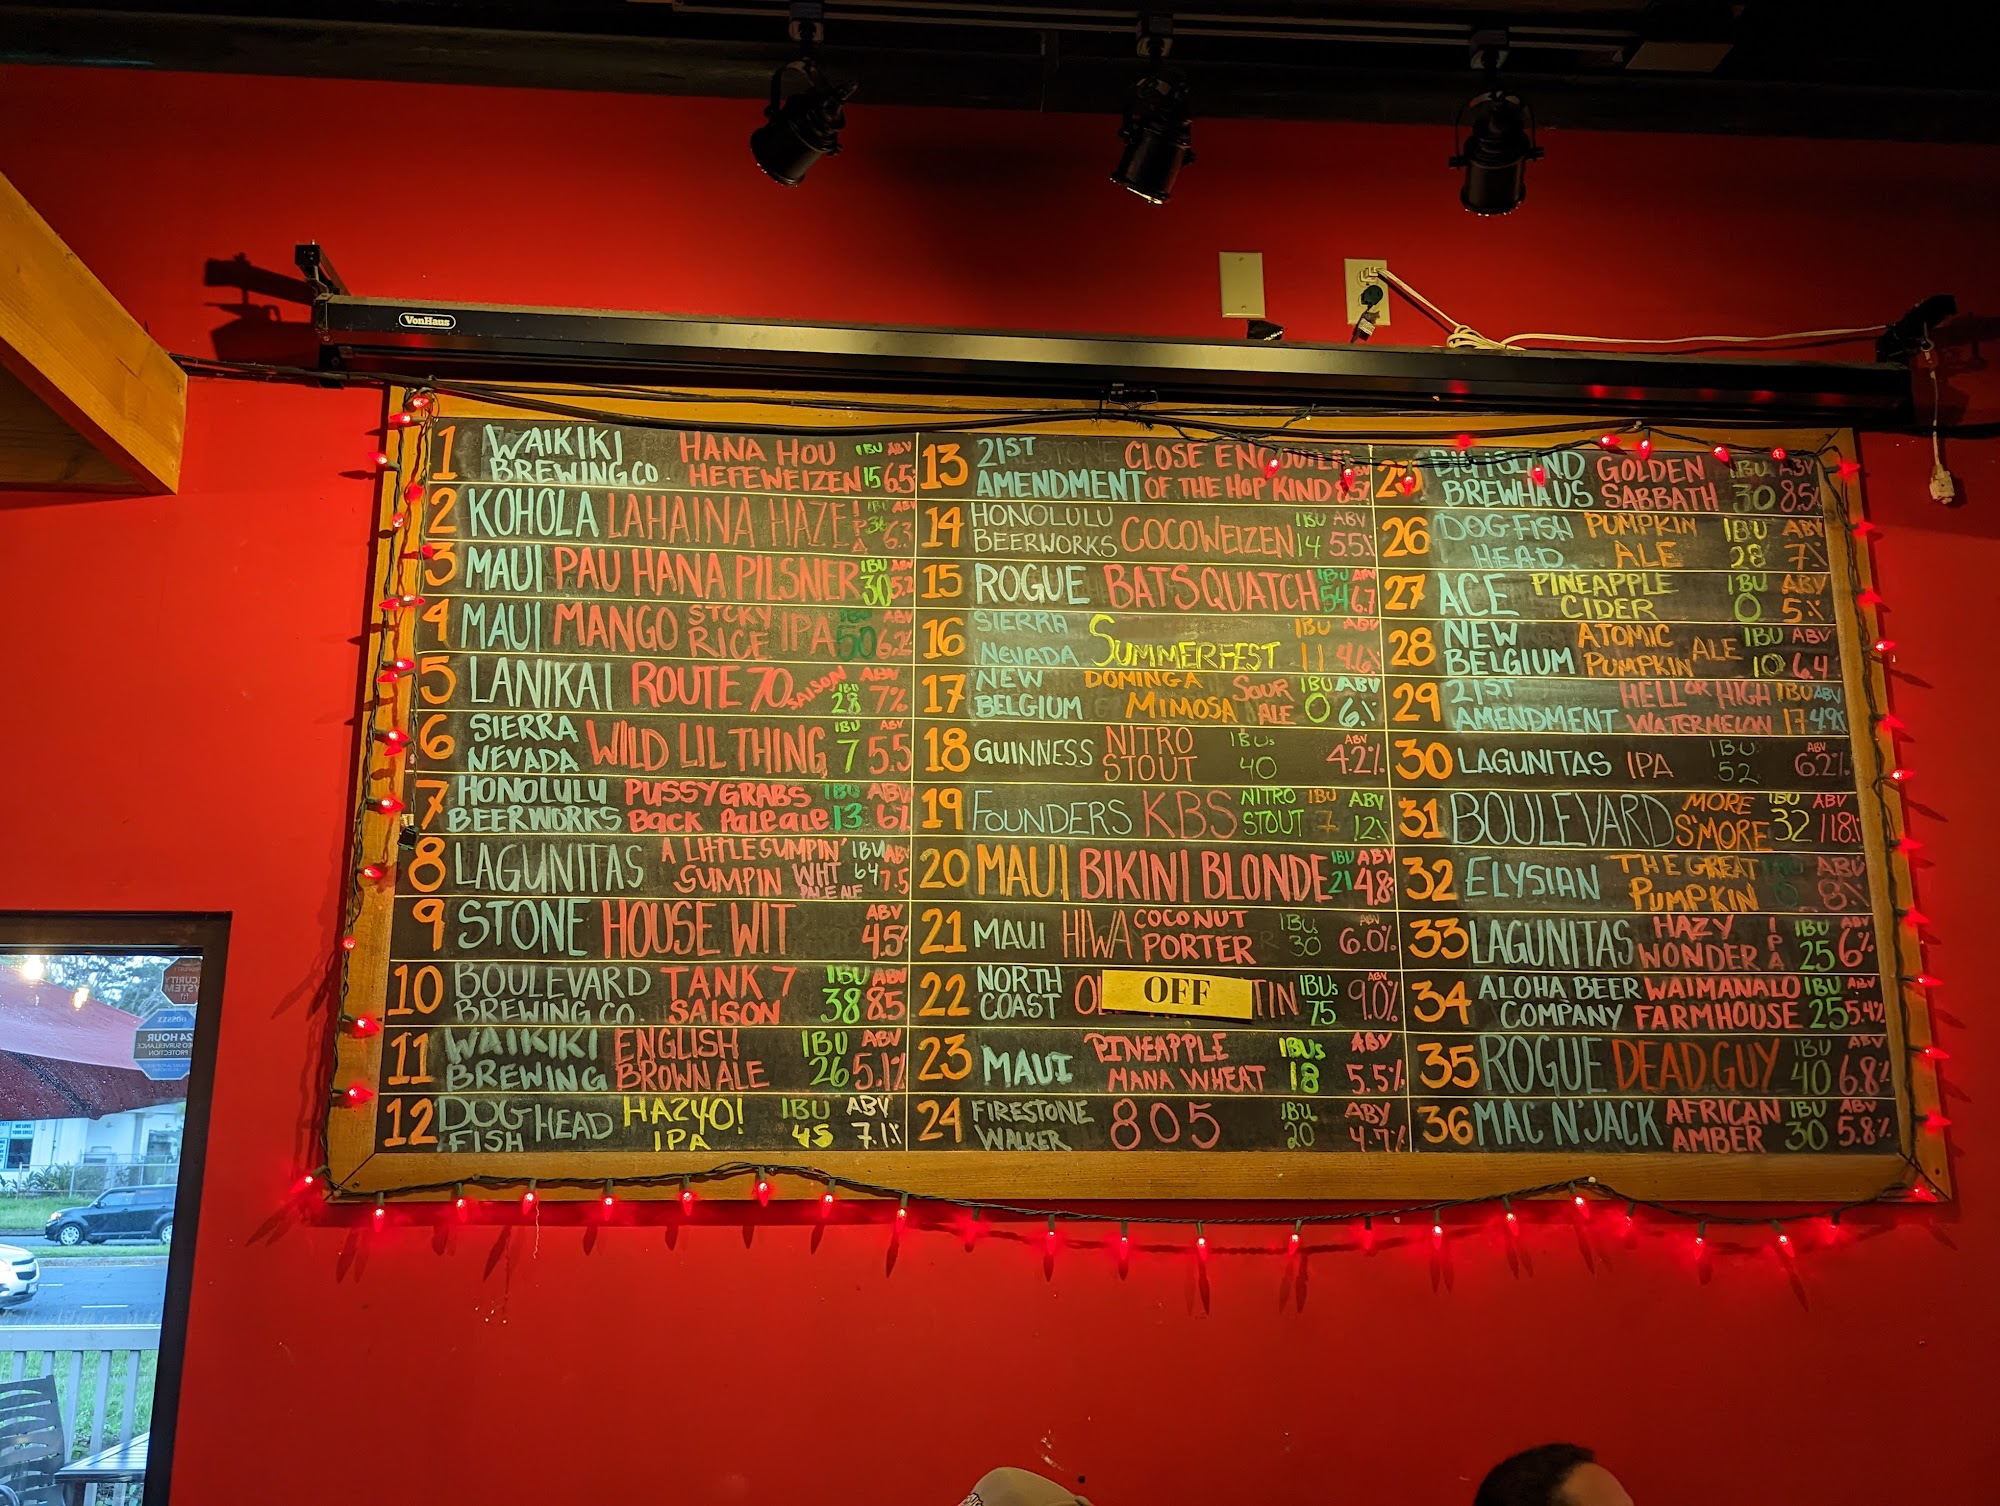 VonHaus
1 WAIKIKI BREWING CO. HANA HOU HEFEWEIZEN IBU 15 ABV 6.5
2 KOHOLA LAHAINA HAZE IPA IBU 36 ABV 6.3
3 MAUI PAU HANA PILSNER IBU 30 ABV 5.2
4 MAUI MANGO STCKY RICE IPA IBU 50 ABV 6.2
5 LANIKAI ROUTE 70 SAISON IBU 28 ABV 7%
6 SIERRA NEVADA WILD LIL THING IBU 7 ABV 5.5
7 HONOLULU BEERWORKS PUSSYGRABS Back Pale ale IBU 13 ABV 6%
8 LAGUNITAS A LITTLE SUMPIN' SUMPIN WHT PALE ALE IBU 64 ABV 7.5
9 STONE HOUSE WIT ABV 4.5%
10 BOULEVARD BREWING CO. TANK 7 SAISON IBU 38 ABV 8.5
11 WAIKIKI BREWING ENGLISH BROWN ALE IBU 26 ABV 5.1%
12 DOG FISH HEAD HAZYO! IPA IBU 45 ABV 7.1%
13 21ST AMENDMENT CLOSE ENCOUNTERS OF THE HOP KIND 8.5%
14 HONOLULU BEERWORKS COCOWEIZEN IBU 14 ABV 5.5%
15 ROGUE BATSQUATCH IBU 54 ABV 6.7
16 SIERRA NEVADA SUMMERFEST IBU 11 ABV 4.6%
17 NEW BELGIUM DOMINGA MIMOSA SOUR ALE IBU 0 ABV 6%
18 GUINNESS NITRO STOUT IBUs 40 ABV 4.2%
19 FOUNDERS KBS NITRO STOUT IBU 7 ABV 12%
20 MAUI BIKINI BLONDE IBU 21 ABV 4.8
21 MAUI HIWA COCONUT PORTER IBUs 30 ABV 6.0%
22 NORTH COAST OL OFF TIN IBUs 75 ABV 9.0%
23 MAUI PINEAPPLE MANA WHEAT IBUs 18 ABV 5.5%
24 FIRESTONE WALKER 805 IBU 20 ABV 4.7%
25 BIG ISLAND BREWHAUS GOLDEN SABBATH IBU 30 ABV 8.5%
26 DOGFISH HEAD PUMPKIN ALE IBU 28 ABV 7%
27 ACE PINEAPPLE CIDER IBU 0 ABV 5%
28 NEW BELGIUM ATOMIC PUMPKIN ALE IBU 10 ABV 6.4
29 21ST AMENDMENT HELL OR HIGH WATERMELON IBU 17 ABV 4.9%
30 LAGUNITAS IPA IBU 52 ABV 6.2%
31 BOULEVARD MORE S'MORE IBU 32 ABV 11.8%
32 ELYSIAN THE GREAT PUMPKIN ABV 8%
33 LAGUNITAS HAZY WONDER IPA IBU 25 ABV 6%
34 ALOHA BEER COMPANY WAIMANALO FARMHOUSE IBU 25 ABV 5.4%
35 ROGUE DEAD GUY IBU 40 ABV 6.8%
36 MAC N' JACK AFRICAN AMBER IBU 30 ABV 5.8%
24 HOUR